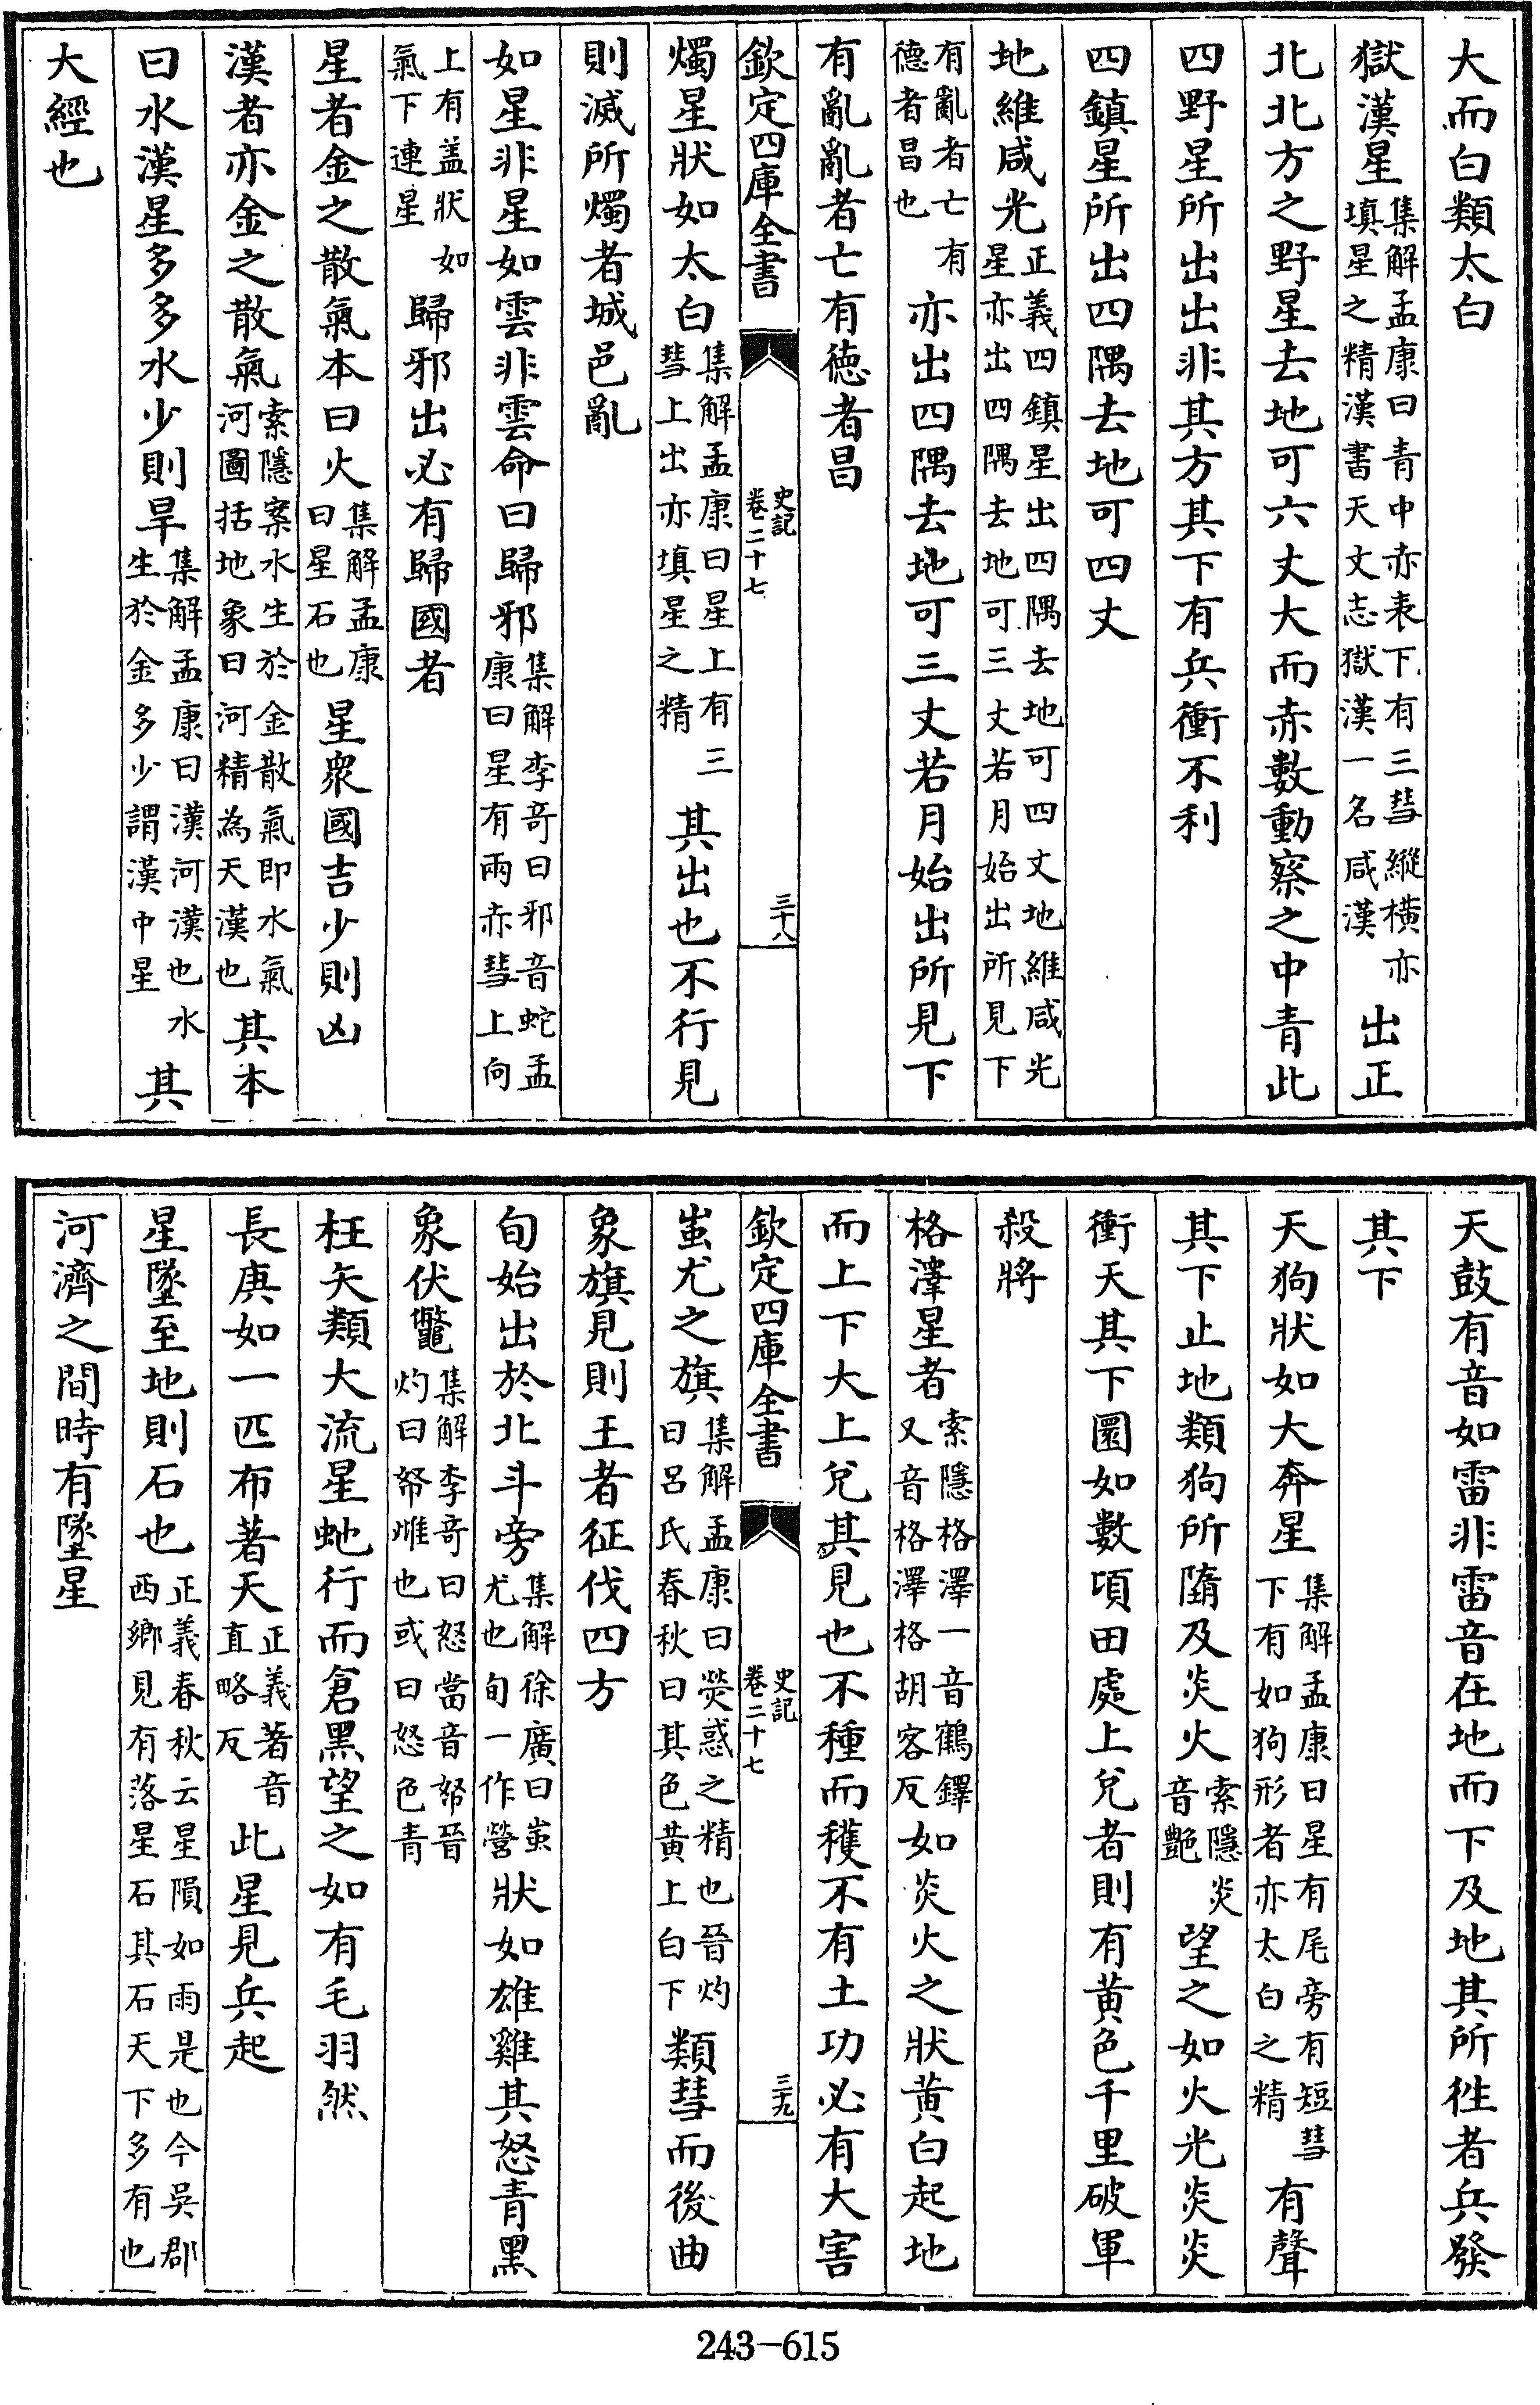 大而白類太白
獄漢星集解孟康曰青中亦表下有三彗縱橫亦填星之精漢書天文志獄漢一名咸漢出正
北北方之野星去地可六丈大而赤數動察之中青此
四野星所出出非其方其下有兵衝不利
四鎮星所出四隅去地可四丈
地維咸光正義四鎮星出四隅去地可四丈地維咸光星亦出四隅去地可三丈若月始出所見下
有亂者亡有德者昌也亦出四隅去地可三丈若月始出所見下
有亂亂者亡有德者昌
欽定四庫全書 史記卷二十七 三十八
燭星狀如太白集解孟康曰星上有三彗上出亦填星之精其出也不行見
則滅所燭者城邑亂
如星非星如雲非雲命曰歸邪集解李奇曰邪音蛇孟康曰星有兩赤彗上向
上有盖狀如氣下連星歸邪出必有歸國者
星者金之散氣本曰火集解孟康曰星石也星衆國吉少則凶
漢者亦金之散氣索隱案水生於金散氣即水氣河圖括地象曰河精為天漢也其本
曰水漢星多多水少則旱集解孟康曰漢河漢也水生於金多少謂漢中星其
大經也
天鼓有音如雷非雷音在地而下及地其所徃者兵發
其下
天狗狀如大奔星集解孟康曰星有尾旁有短彗下有如狗形者亦太白之精有聲
其下止地類狗所墮及炎火索隱炎音艷望之如火光炎炎
衝天其下圜如數頃田處上兌者則有黃色千里破軍
殺將
格澤星者索隱格澤一音鶴鐸又音格澤格胡客反如炎火之狀黃白起地
而上下大上兌其見也不種而穫不有土功必有大害
欽定四庫全書 史記卷二十七 三十九
蚩尤之旗集解孟康曰熒惑之精也晉灼曰呂氏春秋曰其色黃上白下類彗而後曲
象旗見則王者征伐四方
旬始出於北斗旁集解徐廣曰蚩尤也旬一作營狀如雄雞其怒青黑
象伏鼈集解李奇曰怒當音帑晉灼曰帑雌也或曰怒色青
枉矢類大流星虵行而倉黑望之如有毛羽然
長庚如一匹布著天正義著音直略反此星見兵起
星墜至地則石也正義春秋云星隕如雨是也今吳郡西鄉見有落星石其石天下多有也
河濟之間時有墜星
243-615